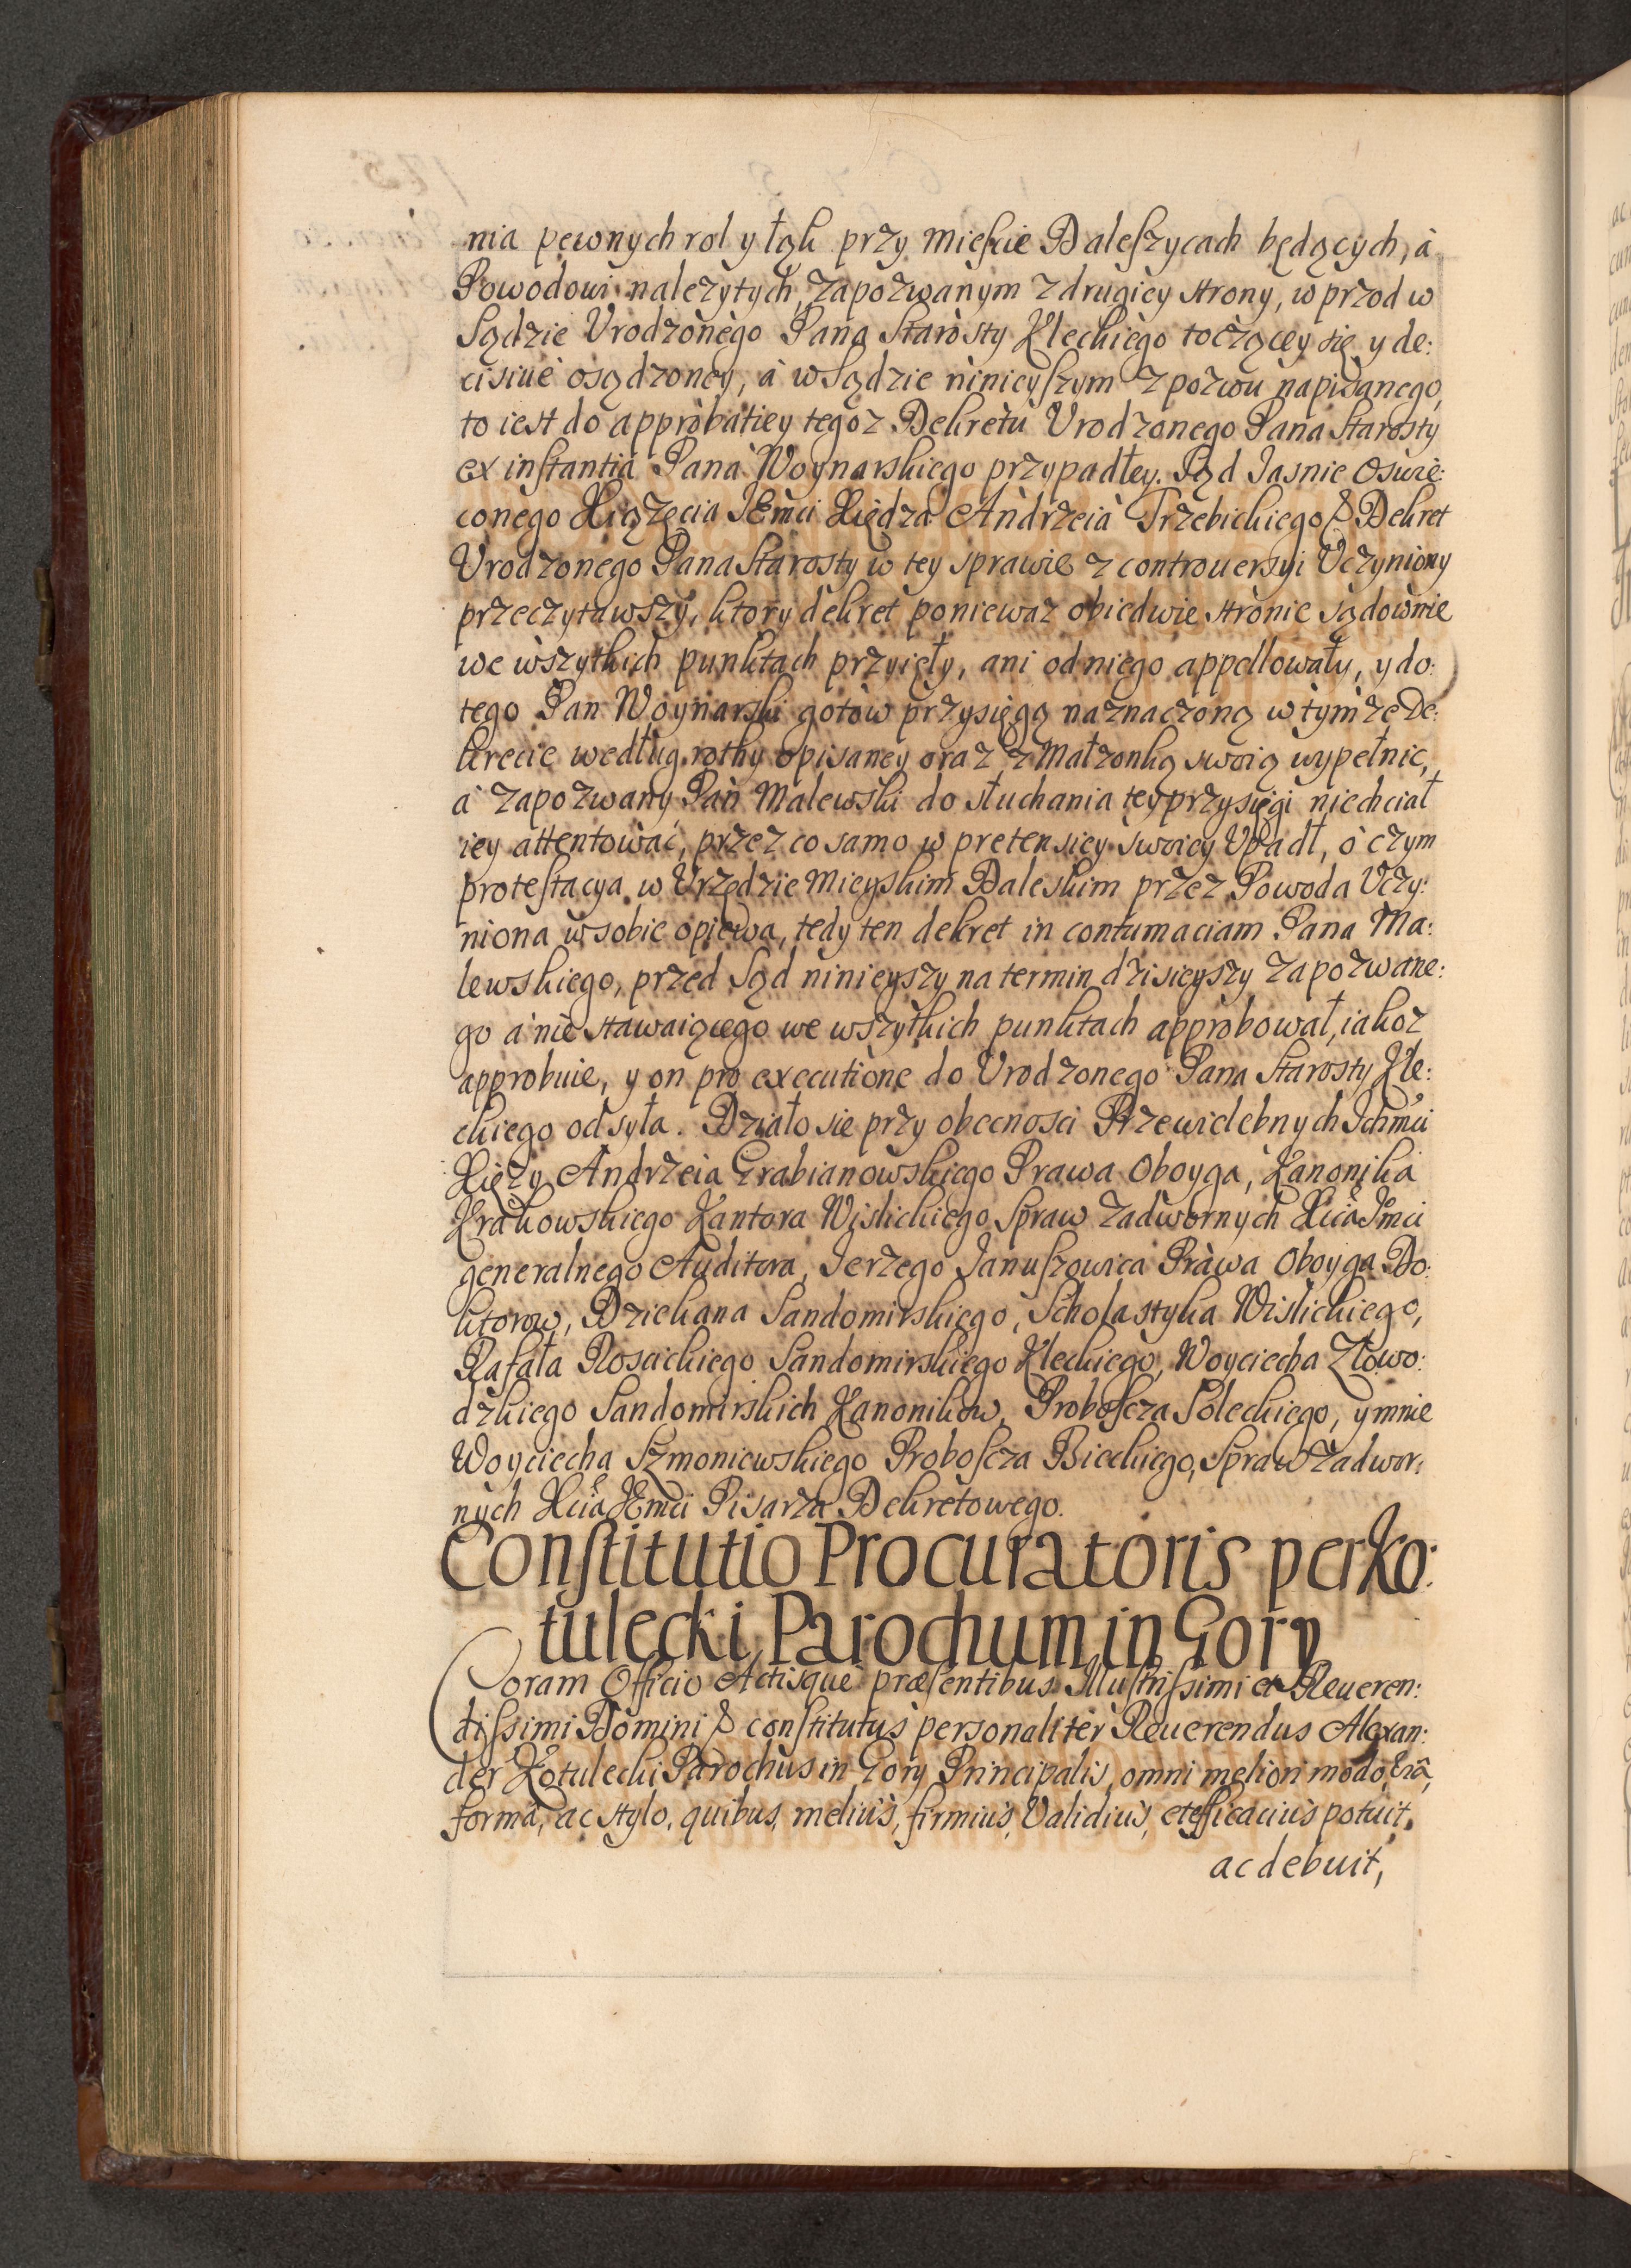 nia pewnych rol y łąk przy mieſcie Daleſzycach będących, á
Powodowi należytych, zapozwanym z drugiey strony, w przod w
Sądzie Vrodzonego Pana Starosty Kleckiego toczącey się y de:
cisiue osądzoney, á w Sądzie ninieyſzym z pozwu napisanego,
to iest do approbatiey tegoz Dekretu Vrodzonego Pana Starosty
ex inſtantia Pana Woynarskiego przypadłey. Sąd Jasnie Oswie:
conego Xiążęcia JEmci Xiędza Andrzeia Trzebickiego & Dekret
Vrodzonego Pana Starosty w tey sprawie z controuersyi Vczyniony
przeczytawszy, ktory dekret poniewaz obiedwie stronie sądownie
we wszytkich punktach przyięły, ani od niego appellowały, y do:
tego Pan Woynarski gotow przysięgą naznaczoną w tymze De:
krecie według rothy opisaney oraz z Małzonką swoią wypełnic,
á zapozwany Pan Malewski do słuchania tey przysięgi niechciał
iey attentować, przez co samo w pretensiey swoiey Vpadł, o czym
proteſtacya w Vrzędzie Mieyskim Daleskim przez Powoda Vczy:
niona w sobie opiewa, tedy ten dekret in contumaciam Pana Ma:
lewskiego, przed Sąd ninieyszy na termin dzisieyszy zapozwane:
go á nie stawaiącego we wszytkich punktach approbował, iakoz
approbuie, y on pro executione do Vrodzonego Pana Starosty Kle:
ckiego odsyła. Działo sie przy obecnosci Przewielebnych Ichmci
Xięzy Andrzeia Grabianowskiego Prawa Oboyga, Kanonika
Krakowskiego Kantora Wislickiego Spraw Zadwornych Xcia Jmci
generalnego Auditora, Jerzego Januſzowica Prawa Oboyga Do:
ktorow, Dziekana Sandomirskiego, Scholastyka Wislickiego,
Rafała Roscickiego Sandomirskiego Kleckiego, Woyciecha Złowo:
dzkiego Sandomirskich Kanonikow, Proboſcza Soleckiego, y mnie
Woyciecha Szmoniewskiego Proboſcza Bieckiego, Spraw Zadwor:
nych Xcia JEmci Pisarza Dekretowego.
Conſtitutio Procuratoris per Ko:
tulecki Parochum in Gory
Coram Officio Actisque præsentibus Illuſtriſsimi et Reueren:
diſsimi Domini & conſtitutus personaliter Reuerendus Alexan:
der Kotulecki Parochus in Gory Principalis, omni meliori modo,
forma, ac stylo, quibus, melius, firmius, Validius, et efficacius potuit,
ac debuit,